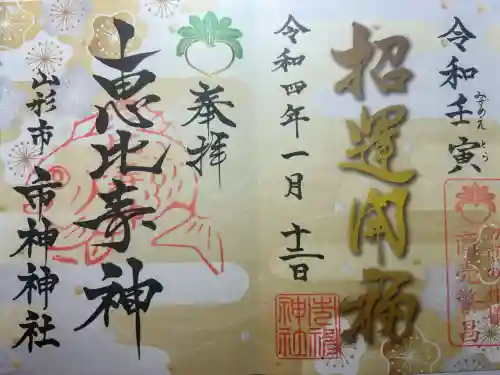 令和壬寅
みずのえ とら
招運開福
令和四年一月十二日
奉拝
恵比寿神
山形市 市神神社
商売繁昌